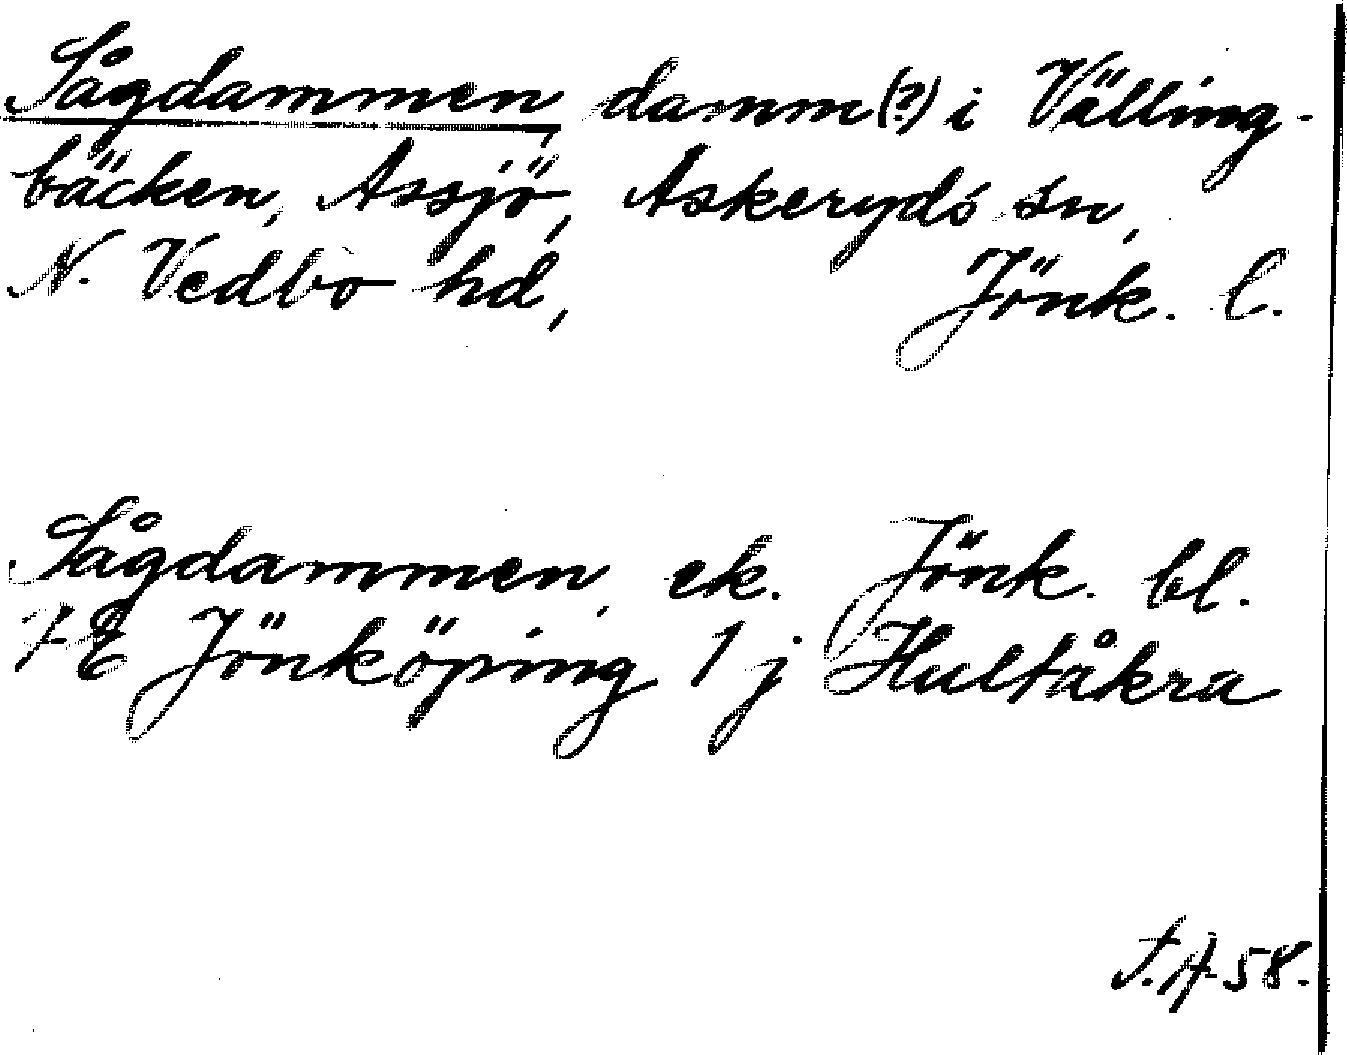 Sågdammen, damm(?) i Välling-
bäcken, Assjö, Askeryds sn,
N. Vedbo hd, Jönk. l.
Sågdammen, ek. Jönk. bl.
7E Jönköping 1 j Hultåkra
58.